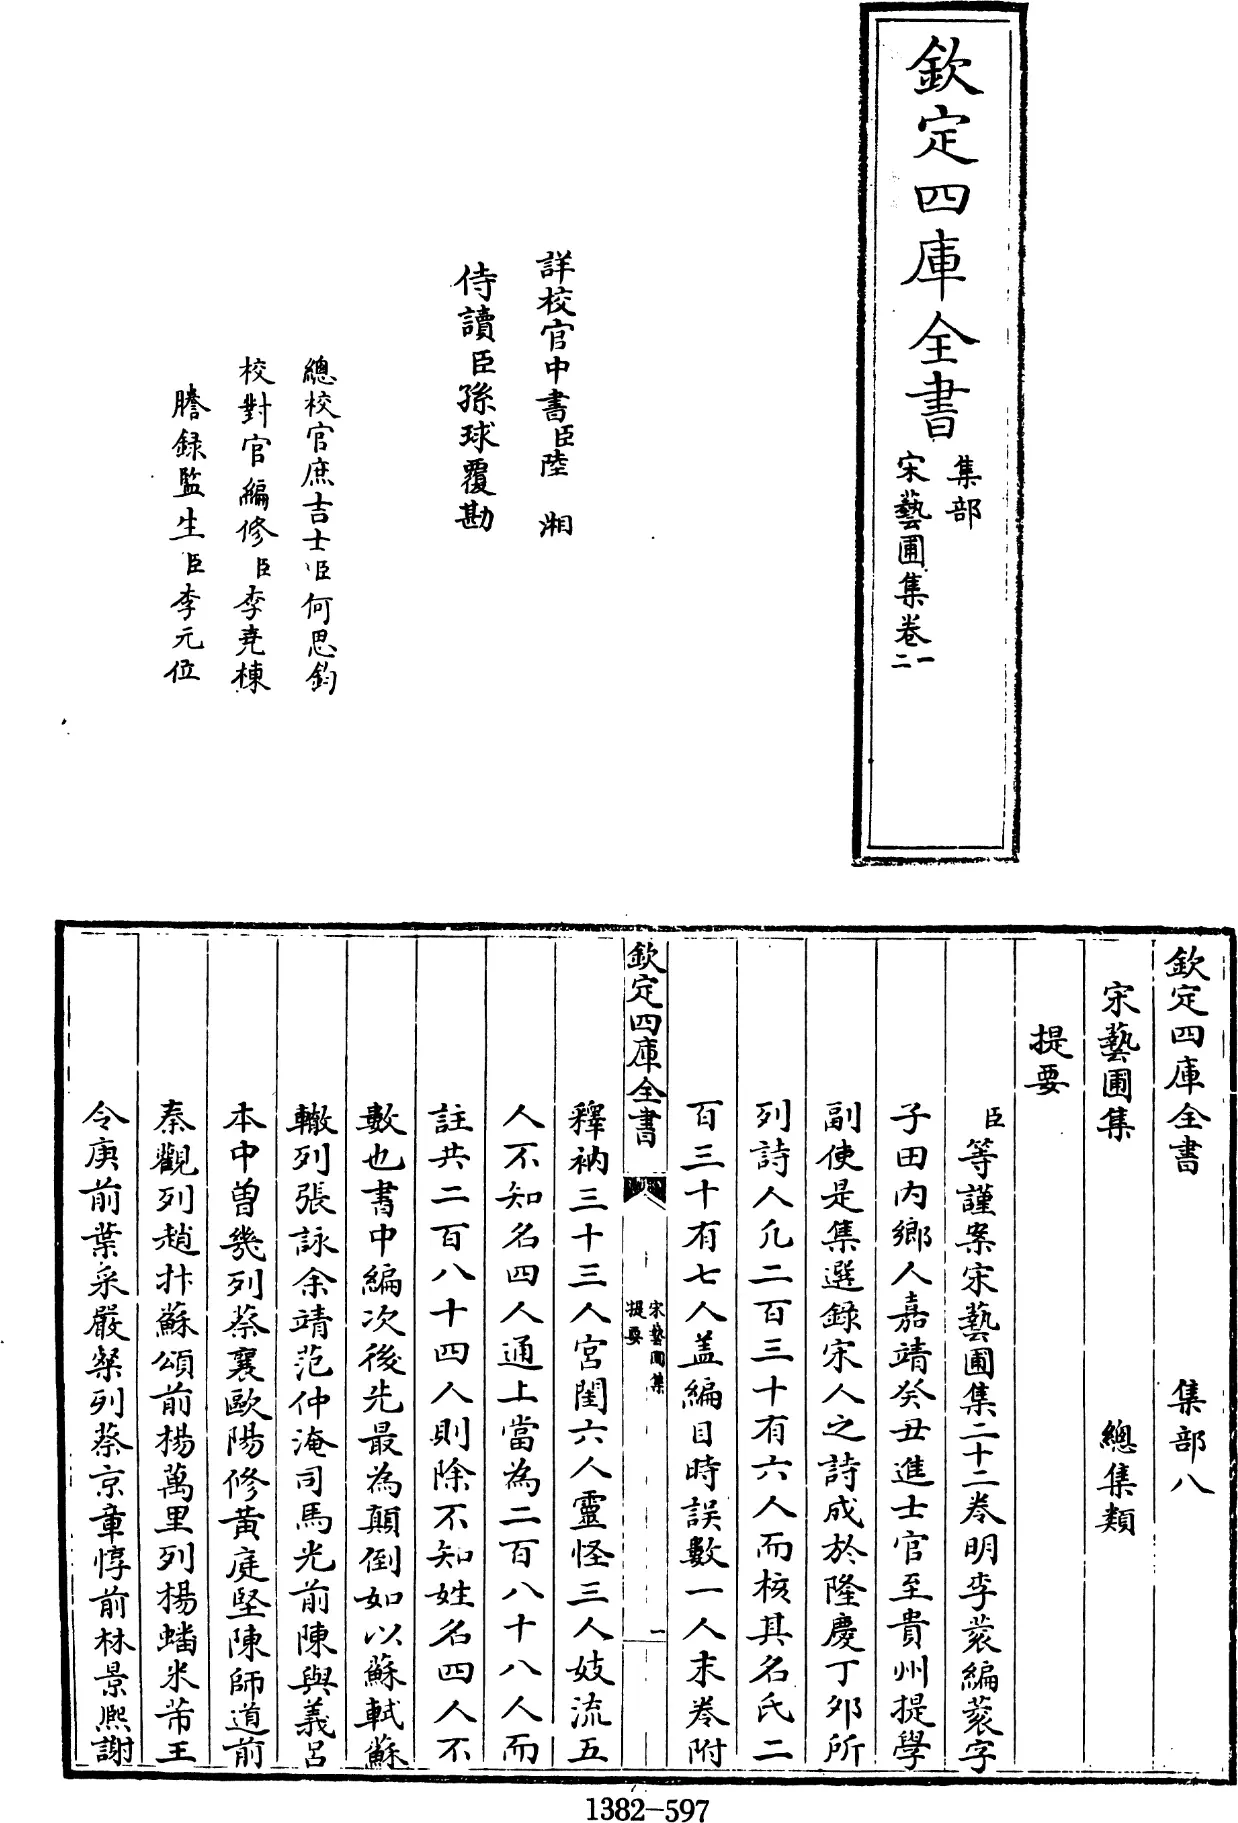 欽定四庫全書
集部
宋藝圃集卷一
二
詳校官中書臣陸湘
侍讀臣孫球覆勘
總校官庶吉士臣何思鈞
校對官編修臣李堯棟
謄録監生臣李元位
欽定四庫全書 集部八
宋藝圃集 總集類
提要
臣等謹案宋藝圃集二十二卷明李蓘編蓘字
子田内鄉人嘉靖癸丑進士官至貴州提學
副使是集選録宋人之詩成於隆慶丁夘所
列詩人凡二百三十有六人而核其名氏二
百三十有七人盖編目時誤數一人末卷附
欽定四庫全書
宋藝圃集
提要
一
釋衲三十三人宮閨六人靈怪三人妓流五
人不知名四人通上當為二百八十八人而
註共二百八十四人則除不知姓名四人不
數也書中編次後先最為顛倒如以蘇軾蘇
轍列張詠余靖范仲淹司馬光前陳與義呂
本中曾幾列蔡襄歐陽修黃庭堅陳師道前
秦觀列趙抃蘇頌前楊萬里列楊蟠米芾王
令庚前葉采嚴粲列蔡京章惇前林景熙謝
1382-597